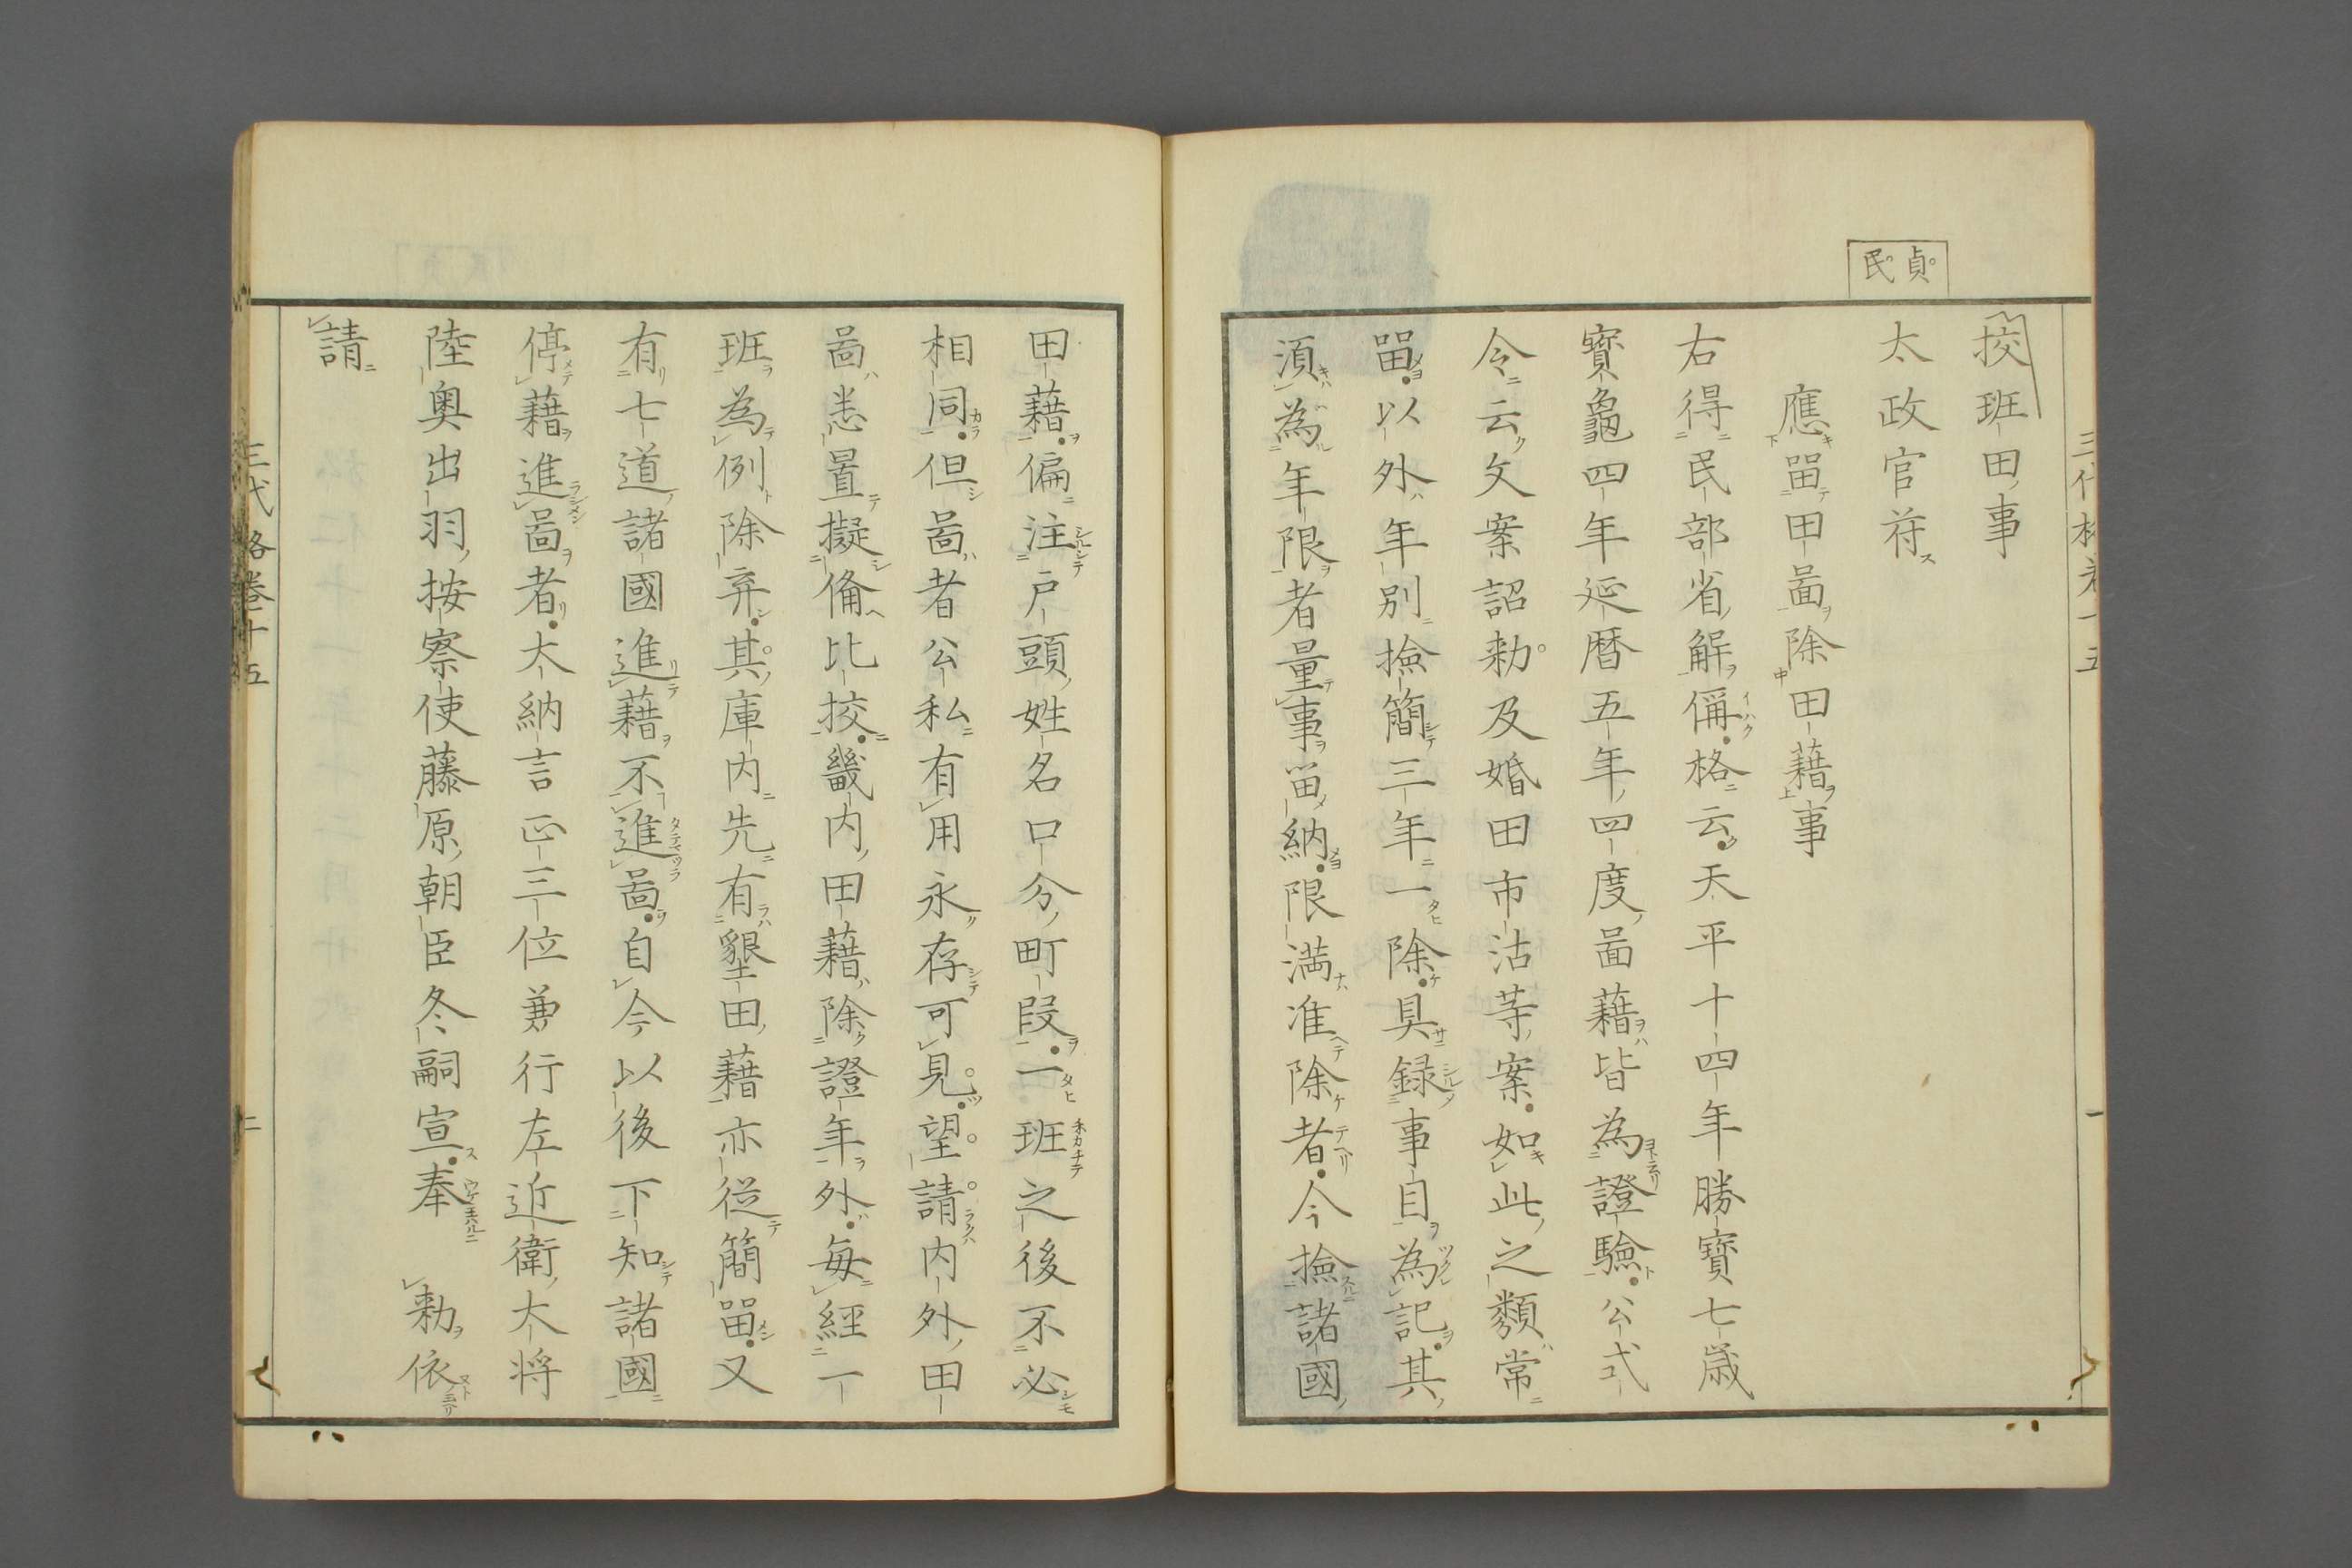 貞
民
三代格卷十五 一
挍班田事
太政官符
應畱田啚除田藉事
右得民部省解偁格云天平十四年勝寶七歳
寳龜四年延暦五年四度啚藉皆為證驗公式
令云文案詔勅及婚田市沽等案如此之類常
畱以外年別撿簡三年一除具録事目為記其
湏為年限者量事畱納限満准除者今撿諸國
田藉偏注戸頭姓名口分町段一班之後不必
相同但啚者公私有用永存可見望請内外田
啚悉置擬俻比挍畿内田藉除證年外毎經一
班為例除弃其庫内先有墾田藉亦從簡畱又
有七道諸國進藉不進啚自今以後下知諸國
停藉進啚者大納言正三位兼行左近衛大将
陸奥出羽按察使藤原朝臣冬嗣宣奉 勅依
請
三代格卷十五 二